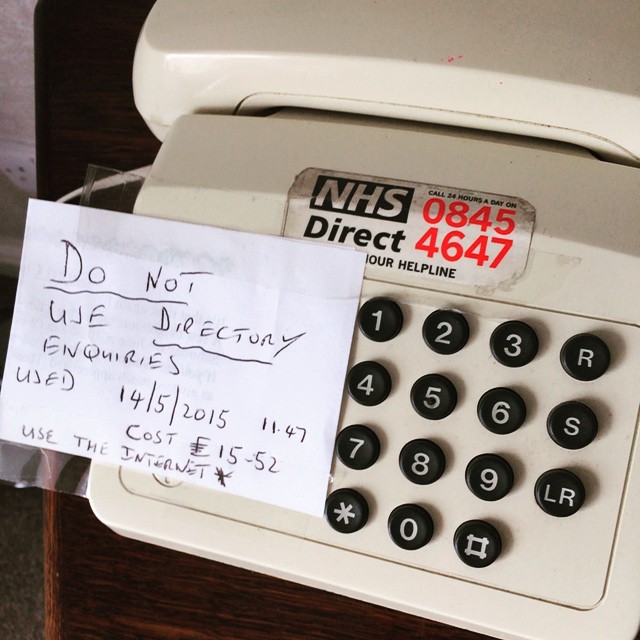 NHS
Direct
CALL 24 HOURS A DAY ON
0845
4647
HOUR HELPLINE
DO NOT
USE DIRECTORY
ENQUIRIES
USED 14/5/2015 11.47
COST £15-52
USE THE INTERNET*
1 2 3 R
4 5 6 S
7 8 9 LR
* 0 #